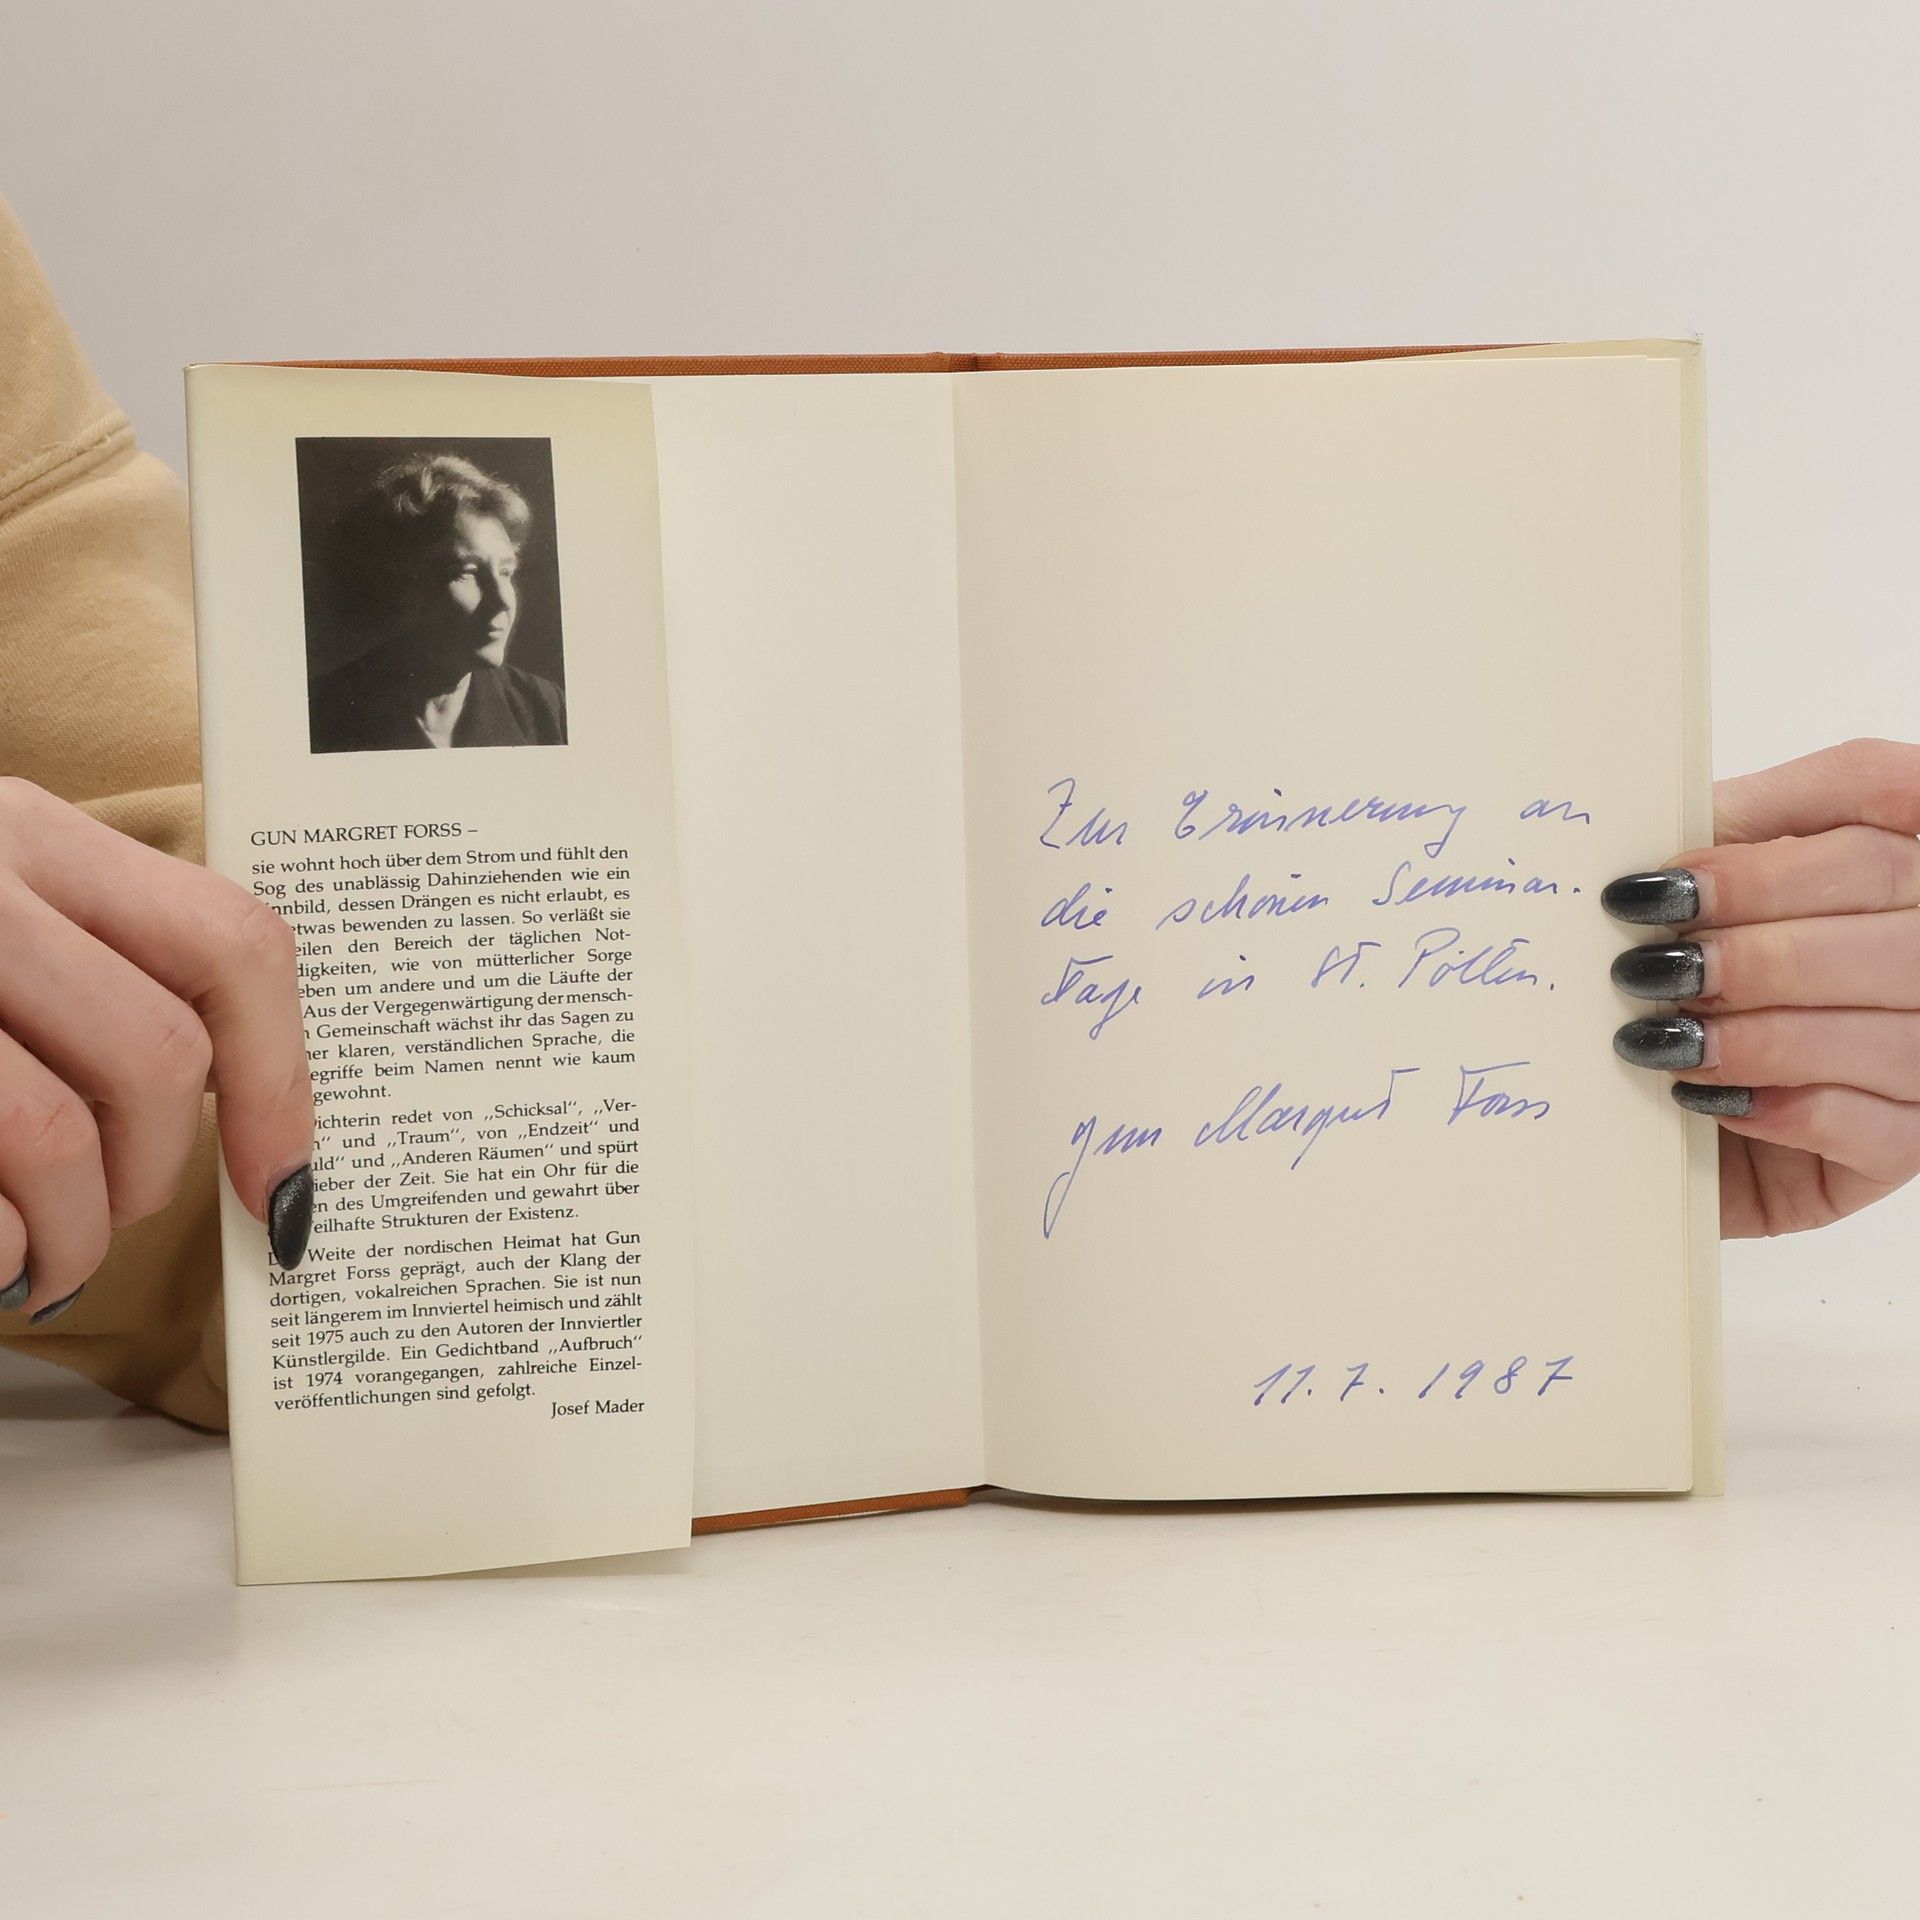 GUN MARGRET FORSS –
sie wohnt hoch über dem Strom und fühlt den
Sog des unablässig Dahinziehenden wie ein
nnbild, dessen Drängen es nicht erlaubt, es
twas bewenden zu lassen. So verläßt sie
eilen den Bereich der täglichen Not-
digkeiten, wie von mütterlicher Sorge
eben um andere und um die Läufte der
Aus der Vergegenwärtigung der mensch-
n Gemeinschaft wächst ihr das Sagen zu
ner klaren, verständlichen Sprache, die
egriffe beim Namen nennt wie kaum
gewohnt.
ichterin redet von „Schicksal“, „Ver-
n“ und „Traum“, von „Endzeit“ und
uld“ und „Anderen Räumen“ und spürt
ieber der Zeit. Sie hat ein Ohr für die
en des Umgreifenden und gewahrt über
eilhafte Strukturen der Existenz.
D Weite der nordischen Heimat hat Gun
Margret Forss geprägt, auch der Klang der
dortigen, vokalreichen Sprachen. Sie ist nun
seit längerem im Innviertel heimisch und zählt
seit 1975 auch zu den Autoren der Innviertler
Künstlergilde. Ein Gedichtband „Aufbruch“
ist 1974 vorangegangen, zahlreiche Einzel-
veröffentlichungen sind gefolgt.
Josef Mader
Zur Erinnerung an
die schönen Seminar-
Tage in St. Pölten.
Gun Margret Forss
11.7.1987